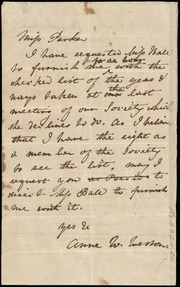 Miss Parker
I have requested Miss Ball
to furnish me with the
checked list of the yeas &
nays taken at the last
meeting of our Society which
she declines to do. As I believe
that I have the right as
a member of the Society
to see the list, may I
request you
direct Miss Ball to furnish
me with it.
Yrs &c
Anne W. Weston